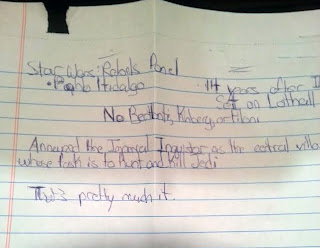 Star Wars: Rebels Panel
• Pablo Hidalgo
14 years after
Set on Lothal
No Beckett, Kinberg, or Filoni
Announced the Imperial Inquisitor as the central villa
whose task is to hunt and kill Jedi
That's pretty much it.